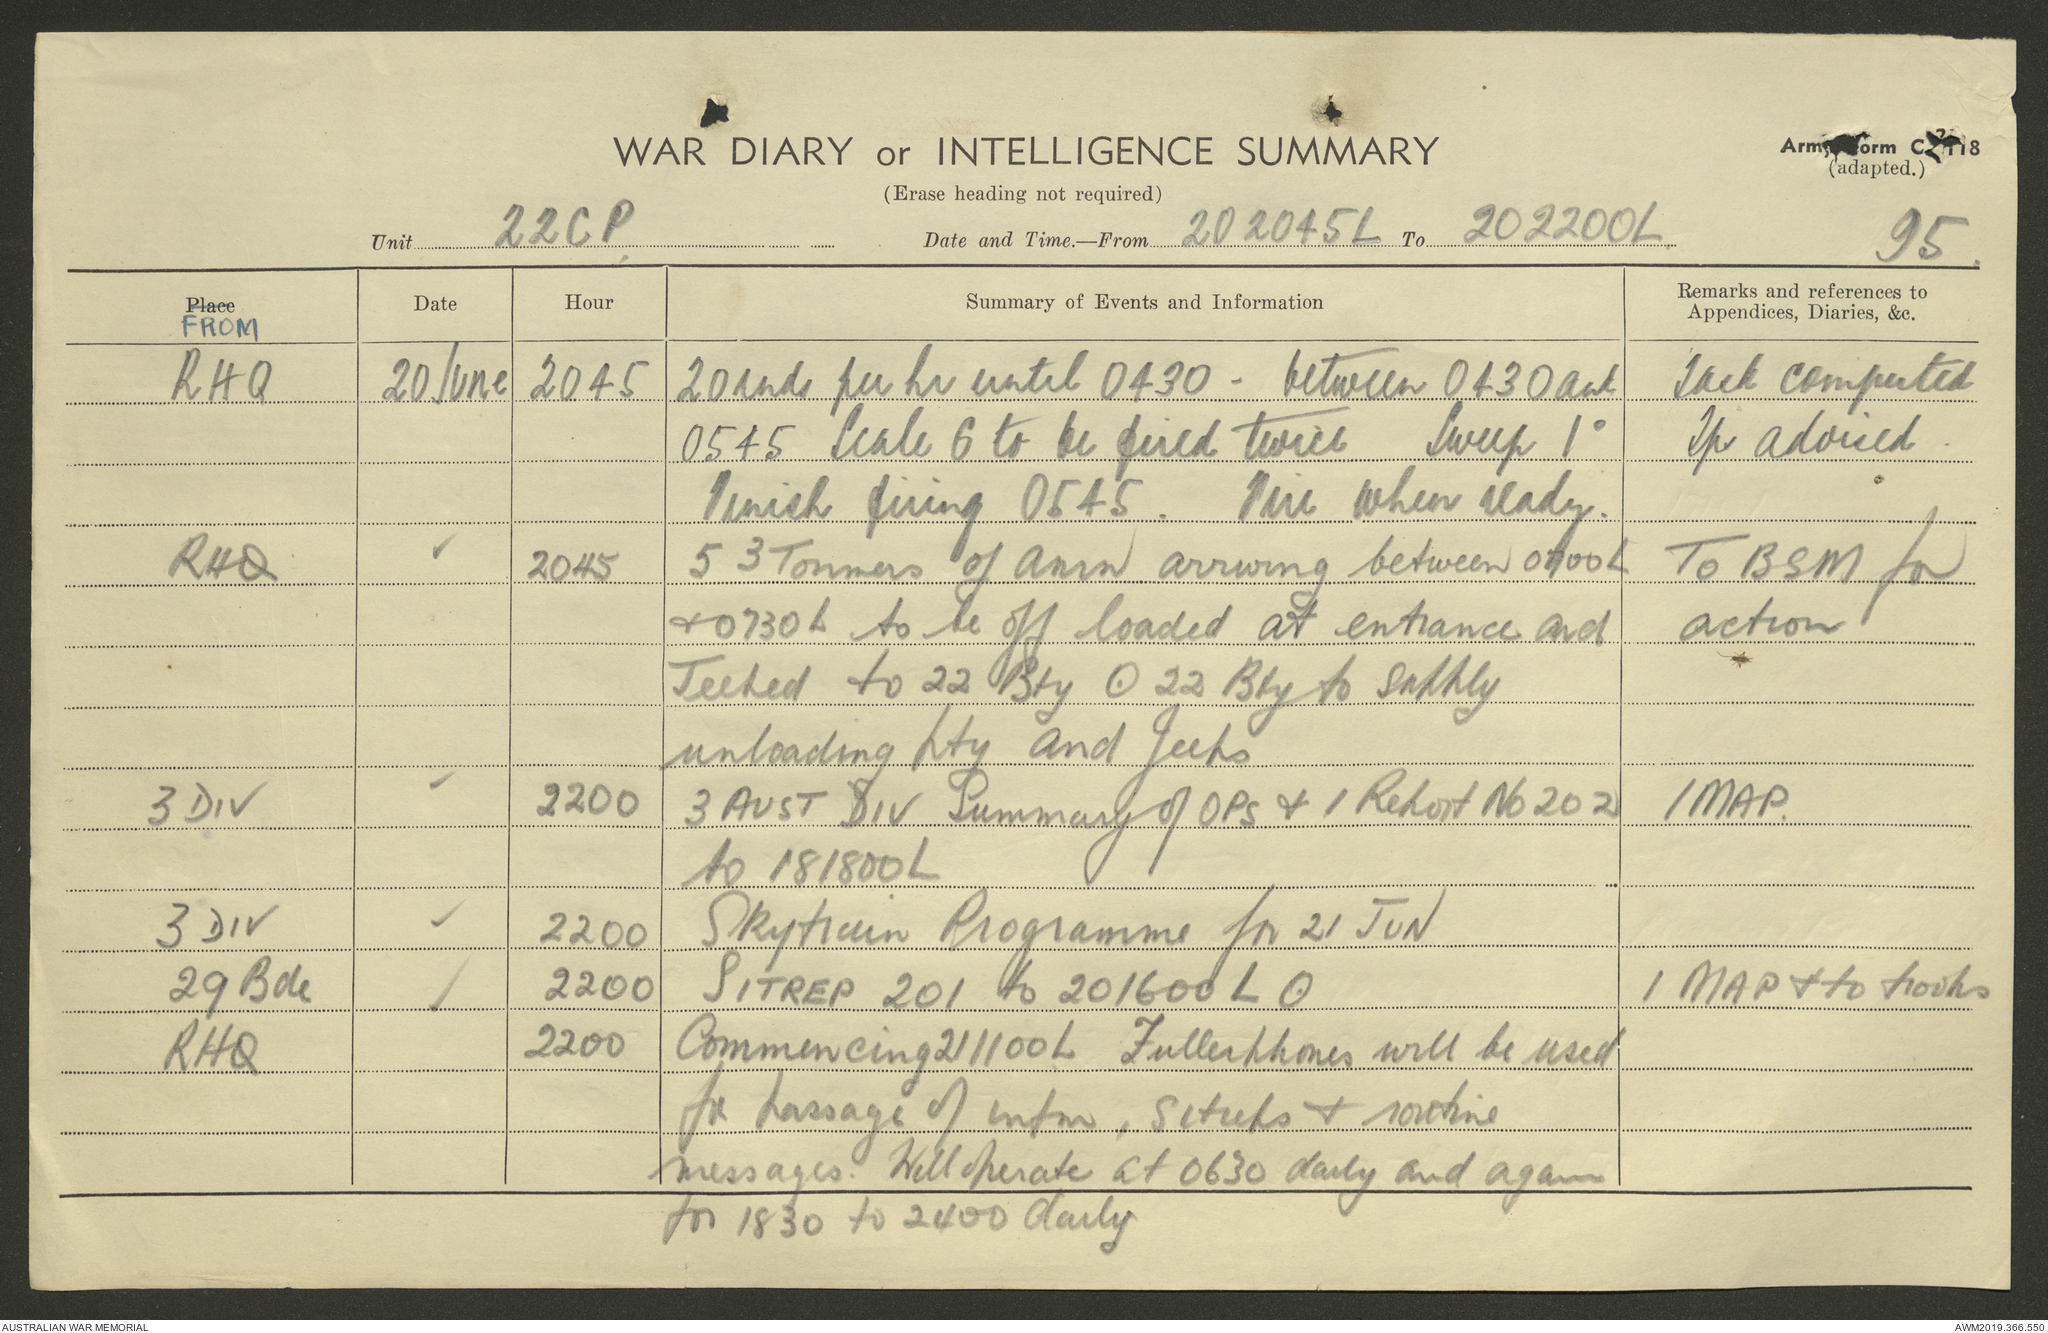 WAR DIARY or INTELLIGENCE SUMMARY
Army Form C. 2118
(adapted.)
(Erase heading not required)
Unit 22 C P Date and Time.—From 202045L To 202200L 95.
Place
FROM Date Hour Summary of Events and Information Remarks and references to Appendices, Diaries, &c.
RHQ 20 June 2045 20 rnds per hr until 0430 - between 0430 and Task computed
0545 Scale 6 to be fired twice Sweep 1° Tp advised.
Finish firing 0545. Fire when ready.
RHQ ✓ 2045 5 3 Tonners of Amn arriving between 0700L To BSM for
+ 0730L to be off loaded at entrance and action
Jeeped to 22 Bty ⊙ 22 Bty to supply
unloading pty and Jeeps
3 DIV ✓ 2200 3 AUST DIV Summary of OPS + I Report No 202 1 MAP.
to 181800L
3 DIV ✓ 2200 Skytrain Programme for 21 JUN
29 Bde ✓ 2200 SITREP 201 to 201600L ⊙ 1 MAP + to troops
RHQ 2200 Commencing 211100L Fullerphones will be used
for passage of infm, Sitreps + routine
messages. Will operate at 0630 daily and again
for 1830 to 2400 daily
AUSTRALIAN WAR MEMORIAL
AWM2019.366.550